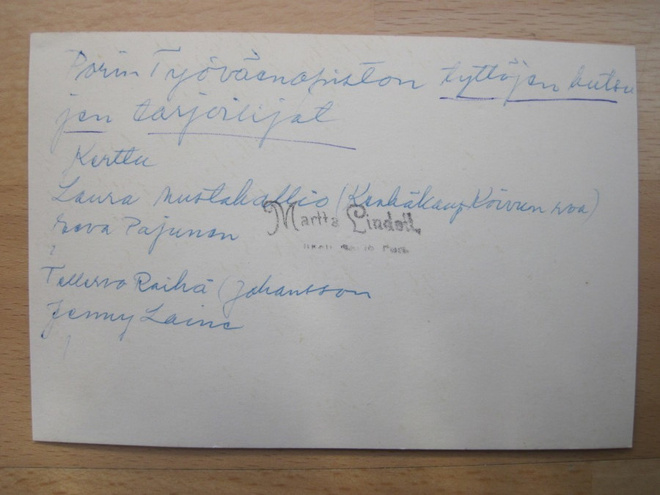 Porin Työväenopiston tyttöjen kutsu
jen tarjoilijat
Kerttu
Laura Mustakallio (Kenkäkaup. Koivun rva)
rova Pajunen
Martta Lindell
Tellervo Raihä (Johansson
Jenny Laine